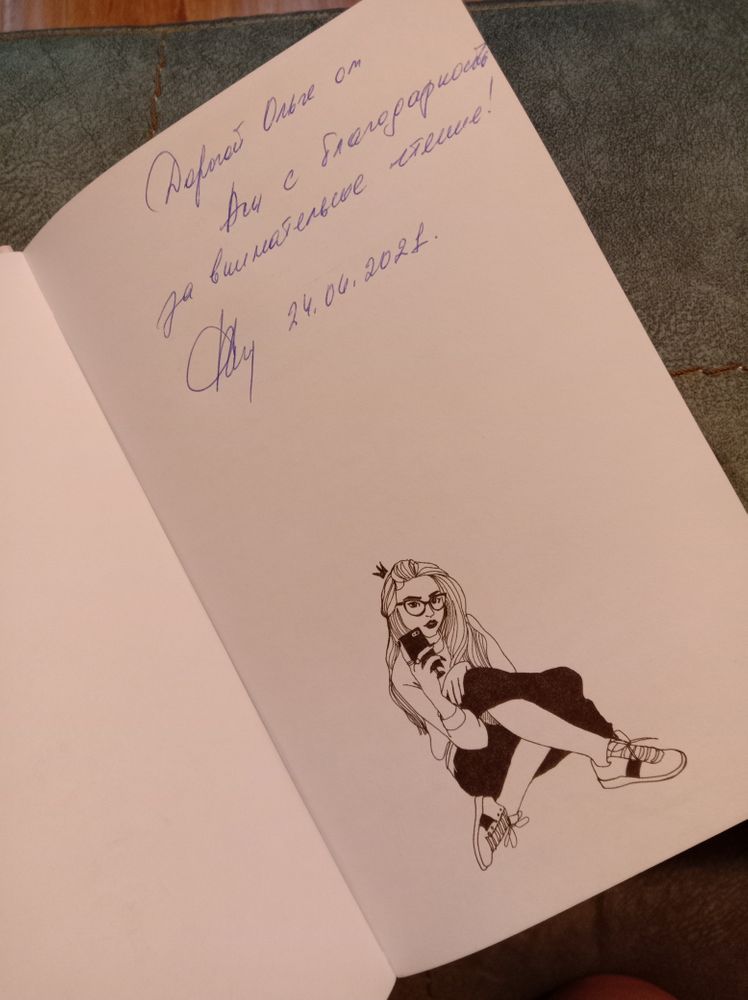 Дорогой Ольге от
Аси с благодарность
за внимательное чтение!
24.04.2021.